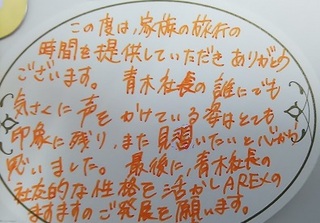 この度は、家族の旅行の
時間を提供していただきありがとう
ございます。 青木社長の誰にでも
気さくに声をかけている姿はとても
印象に残り、また見習いたいと心から
思いました。 最後に、青木社長の
社交的な性格を活かしAREXの
ますますのご発展を願います。